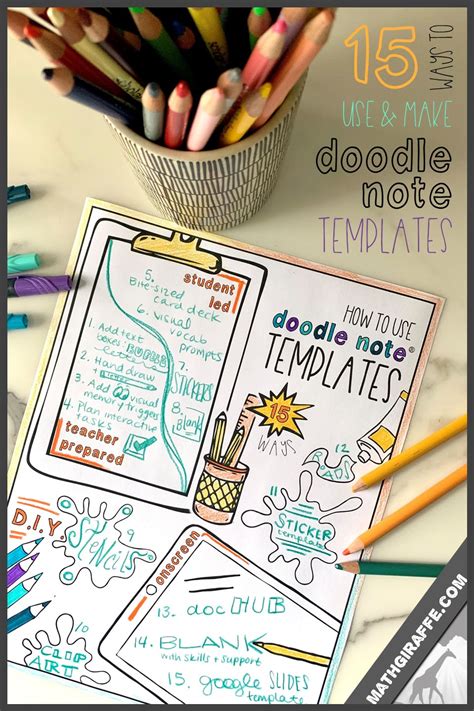 15 WAYS TO
USE & MAKE
doodle
note
TEMPLATES
5. Bite-sized
card deck
student
led
6. visual
vocab
prompts
1. Add text
boxes:
2. Hand draw
7. STICKERS
3. Add
visual
memory triggers
8. Blank
4. Plan interactive
tasks
teacher
prepared
HOW TO USE
doodle note®
TEMPLATES
15
WAYS
12
D.I.Y.
9
STENCILS
10
11
STICKER
templates
CLIP
ART
onscreen
13. doc HUB
14. BLANK
with skills + support
15. google SLIDES
template
MATHGIRAFFE.COM